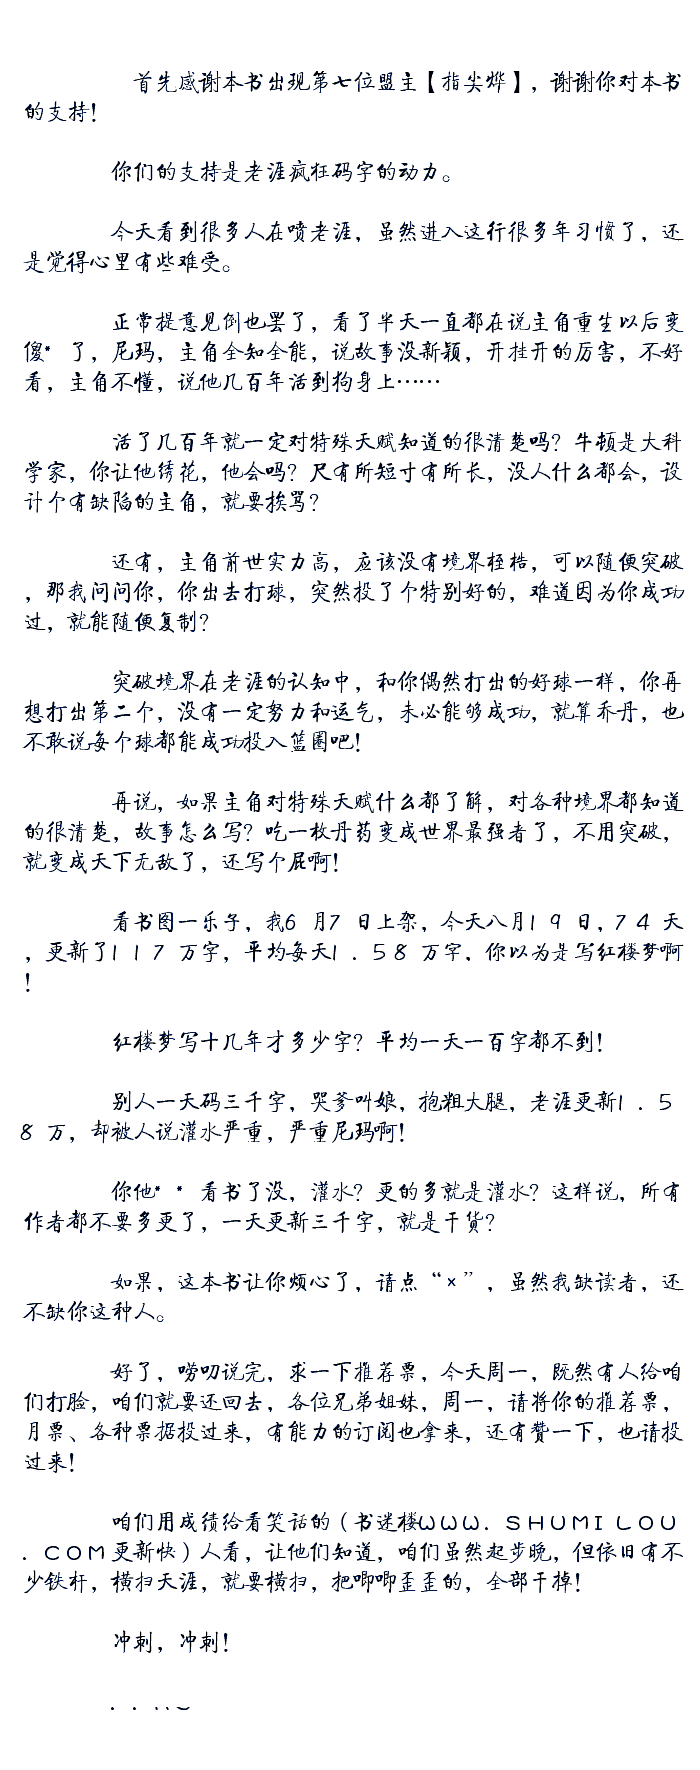 首先感谢本书出现第七位盟主【指尖烨】，谢谢你对本书
的支持！
你们的支持是老涯疯狂码字的动力。
今天看到很多人在喷老涯，虽然进入这行很多年习惯了，还
是觉得心里有些难受。
正常提意见倒也罢了，看了半天一直都在说主角重生以后变
傻* 了，尼玛，主角全知全能，说故事没新颖，开挂开的厉害，不好
看，主角不懂，说他几百年活到狗身上……
活了几百年就一定对特殊天赋知道的很清楚吗？牛顿是大科
学家，你让他绣花，他会吗？尺有所短寸有所长，没人什么都会，设
计个有缺陷的主角，就要挨骂？
还有，主角前世实力高，应该没有境界桎梏，可以随便突破
，那我问问你，你出去打球，突然投了个特别好的，难道因为你成功
过，就能随便复制？
突破境界在老涯的认知中，和你偶然打出的好球一样，你再
想打出第二个，没有一定努力和运气，未必能够成功，就算乔丹，也
不敢说每个球都能成功投入篮圈吧！
再说，如果主角对特殊天赋什么都了解，对各种境界都知道
的很清楚，故事怎么写？吃一枚丹药变成世界最强者了，不用突破，
就变成天下无敌了，还写个屁啊！
看书图一乐子，我6 月7 日上架，今天八月1 9 日，7 4 天
，更新了1 1 7 万字，平均每天1 . 5 8 万字，你以为是写红楼梦啊
！
红楼梦写十几年才多少字？平均一天一百字都不到！
别人一天码三千字，哭爹叫娘，抱粗大腿，老涯更新1 . 5
8 万，却被人说灌水严重，严重尼玛啊！
你他* * 看书了没，灌水？更的多就是灌水？这样说，所有
作者都不要多更了，一天更新三千字，就是干货？
如果，这本书让你烦心了，请点“×”，虽然我缺读者，还
不缺你这种人。
好了，唠叨说完，求一下推荐票，今天周一，既然有人给咱
们打脸，咱们就要还回去，各位兄弟姐妹，周一，请将你的推荐票，
月票、各种票据投过来，有能力的订阅也拿来，还有赞一下，也请投
过来！
咱们用成绩给看笑话的（书迷楼WWW. S H U M I L O U
. C O M 更新快）人看，让他们知道，咱们虽然起步晚，但依旧有不
少铁杆，横扫天涯，就要横扫，把唧唧歪歪的，全部干掉！
冲刺，冲刺！